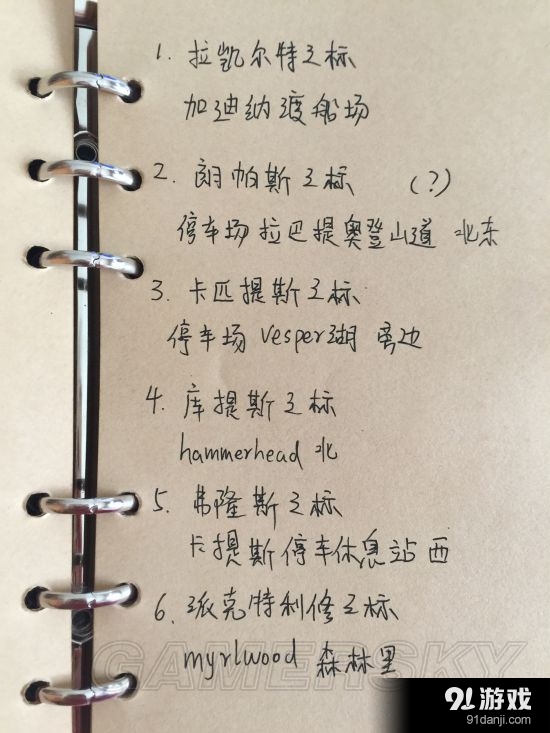 1. 拉凯尔特之标
加迪纳渡船场
2. 朗帕斯之标 (?)
停车场拉巴提奥登山道 北东
3. 卡匹提斯之标
停车场 Vesper湖 旁边
4. 库提斯之标
hammerhead 北
5. 弗隆斯之标
卡提斯停车休息站 西
6. 派克特利修之标
myrlwood 森林里
GAMERSKY
91游戏
91danji.com